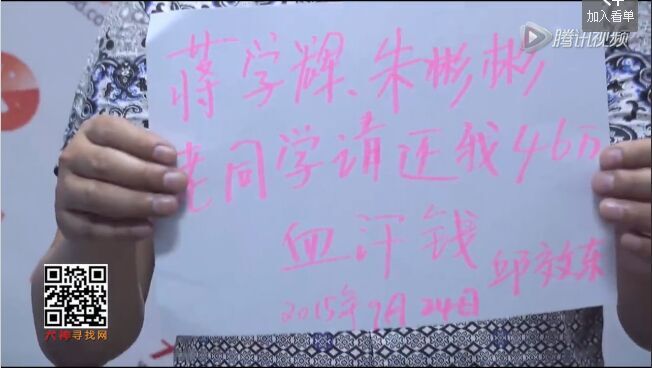 加入看单
腾讯视频
蒋学辉、朱彬彬
老同学请还我46万
血汗钱
邱效东
2015年9月24日
大神寻找网